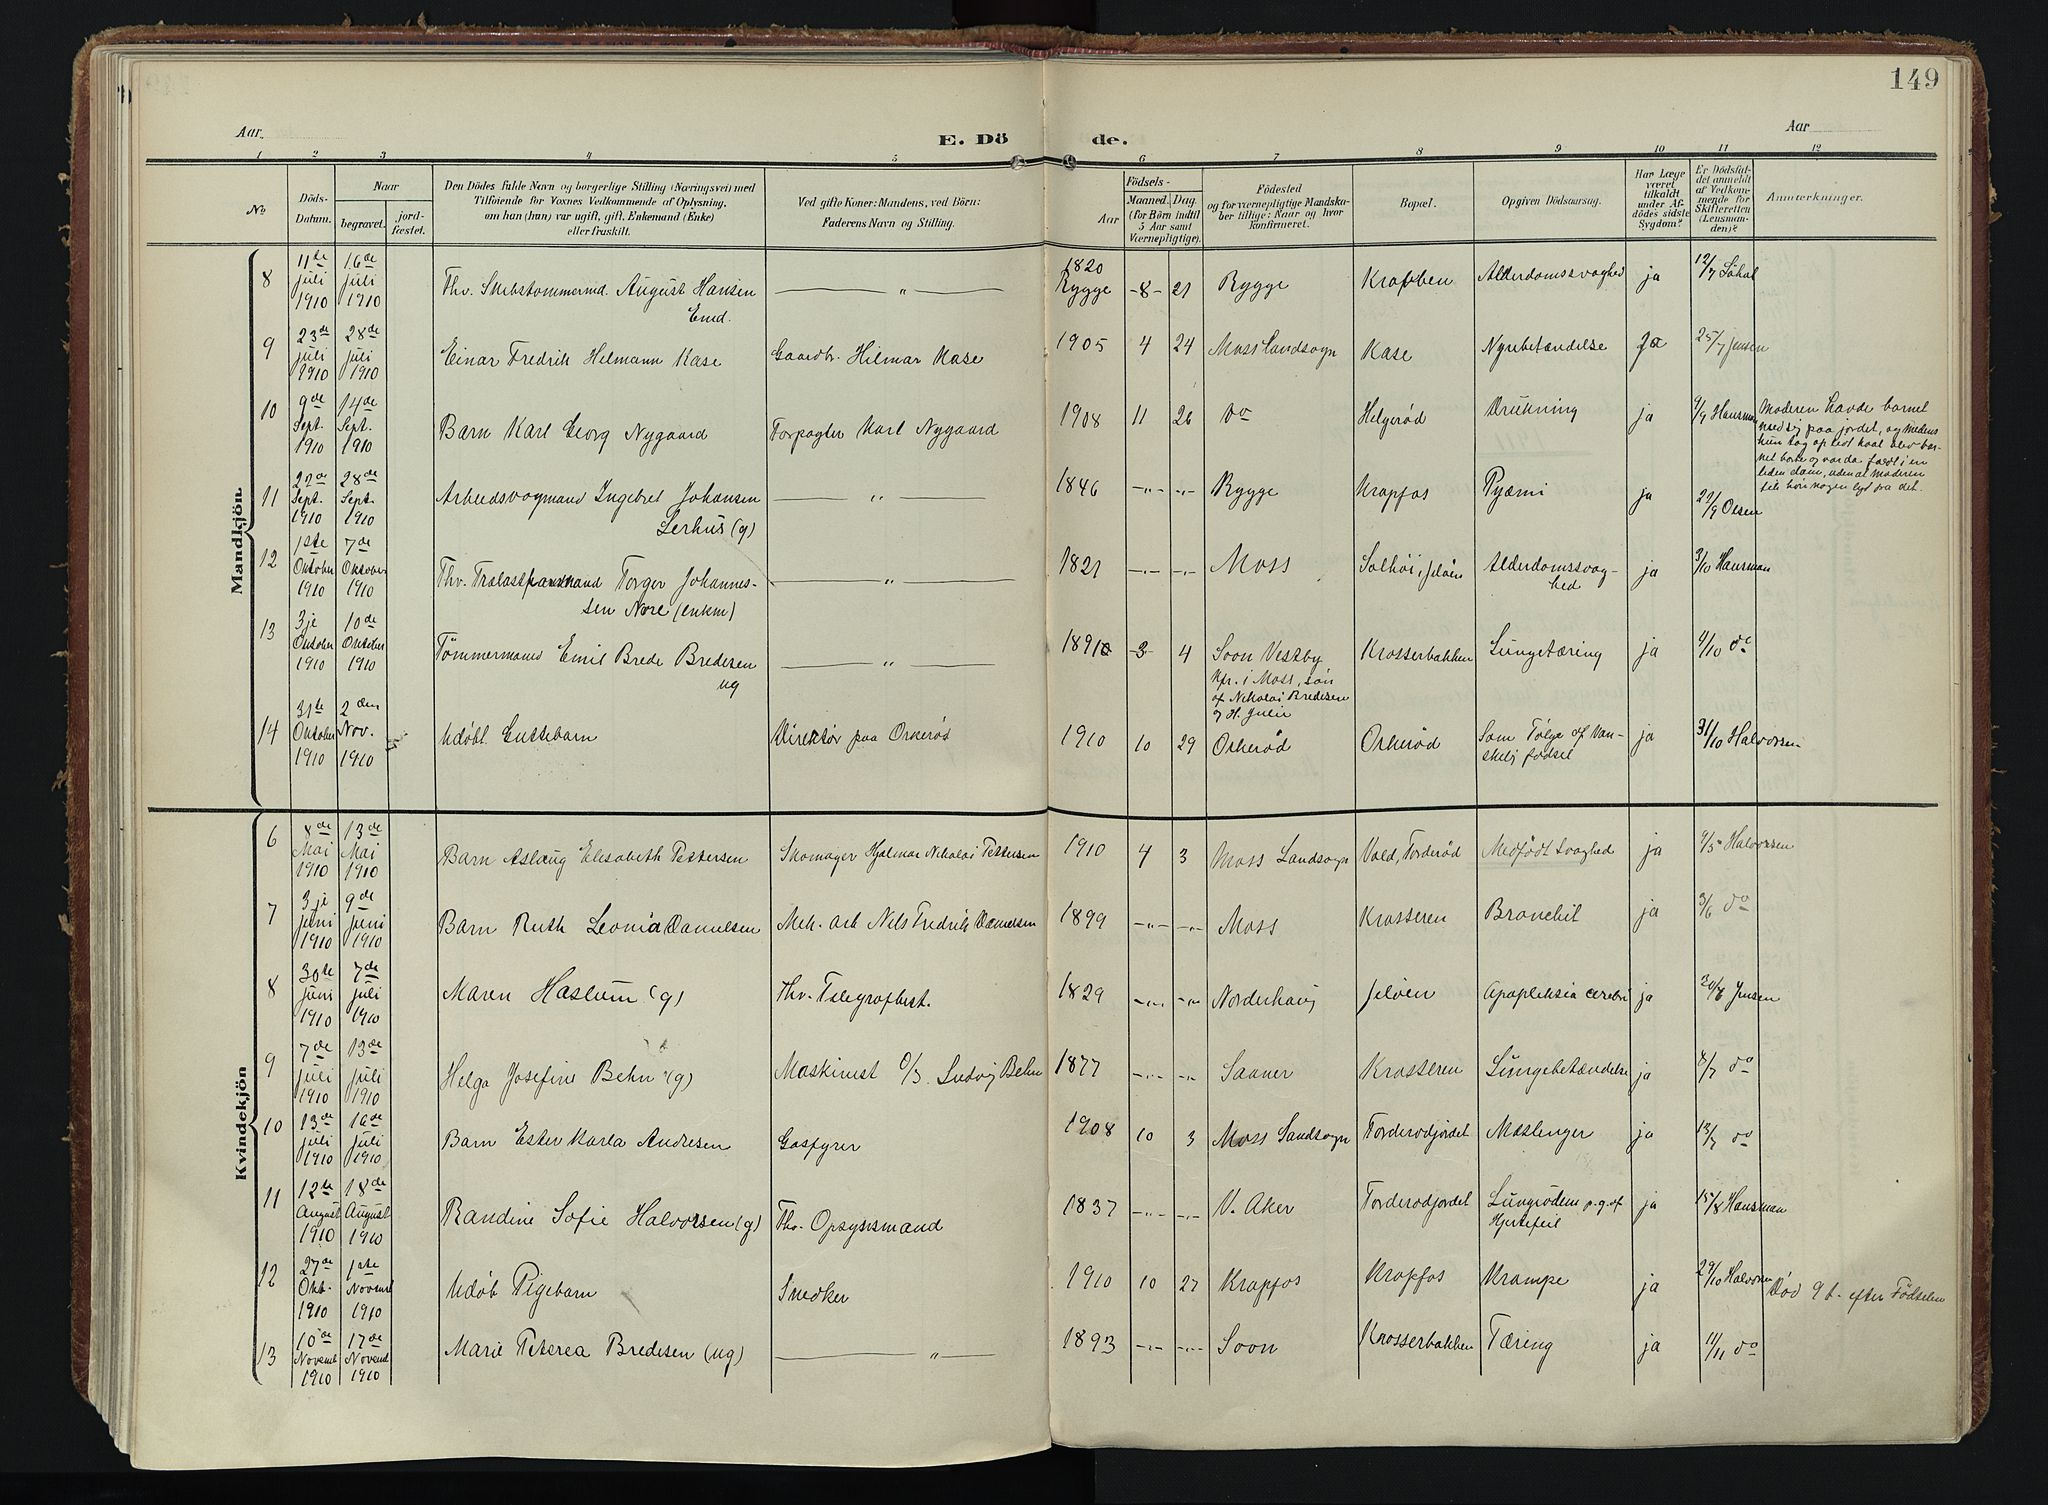 149
Aar
E. Dö de.
Aar
1 2 3 4 5 6 7 8 9 10 11 12
No
Döds-
Datum.
Naar
begravet.
jord-
fæstet.
Den Dödes fulde Navn og borgerlige Stilling (Næringsvei) med
Tilföiende for Voxnes Vedkommende af Oplysning,
om han (hun) var ugift, gift, Enkemand (Enke)
eller fraskilt.
Ved gifte Koner: Mandens, ved Börn:
Faderens Navn og Stilling.
Födsels-
Aar
Maaned. Dag
(for Börn indtil
5 Aar samt
Værnepligtige).
Födested
og for værnepligtige Mandska-
ber tillige: Naar og hvor
konfirmeret.
Bopæl.
Opgiven Dödsaarsag.
Har Læge
været
tilkaldt
under Af-
dödes sidste
Sygdom?
Er Dödsfal-
det anmeldt
af Vedkom-
mende for
Skifteretten
(Lensman-
den)?
Anmærkninger.
Mandkjön.
8 11te juli 1910 16de juli 1910 Fhv. Skibstømmermd. August Hansen Emd. — " — 1820 Rygge -8- 21 Rygge Kropben Alderdomssvaghed ja 12/7
9 23de juli 1910 28de juli 1910 Einar Fredrik Helmann Kase Gaardbr. Hilmar Kase 1905 4 24 Moss landsogn Kase Nyrebetændelse ja 25/7 Jensen
10 9de Sept. 1910 14de Sept. 1910 Barn Karl Georg Nygaard Forpagter Karl Nygaard 1908 11 26 do Helgerød Drukning ja 9/9 Hansman
Moderen havde barnet
med sig paa jordet, og medens
hun tog op lidt kaal blev bar-
net borte og var da faldt i en
liden dam, uden at moderen
fik høre nogen lyd fra det.
11 22de Sept. 1910 28de Sept. 1910 Arbeidsvogmand Ingebret Johansen Lerhus (g) — " — 1846 -"- -"- Rygge Kropfos Pyæmi ja 22/9 Olsen
12 1ste Oktober 1910 7de Oktober 1910 Fhv. Trælasthandland Torger Johannes-
sen Nore (enkm) — " — 1821 -"- -"- Moss Solhöi, Jeløen Alderdomssvag-
hed ja 3/10 Hansman
13 3je Oktober 1910 10de Oktober 1910 Tömmermand Emil Brede Bredesen ug — " — 1891 -3- 4 Soon Vestby
Kfr. i Moss, søn
af Nikolai Bredesen
og H. Julie Krosserbakken Lungetæring ja 4/10 do
14 31te Oktober 1910 2den Nov. 1910 Udøbt Guttebarn Direktør paa Orkerød 1910 10 29 Orkerød Orkerød Som Følge af Van-
skelig fødsel ja 31/10 Halvorsen
Kvindekjön
6 8de Mai 1910 13de Mai 1910 Barn Aslaug Elisabeth Pettersen Skomager Hjalmar Nikolai Pettersen 1910 4 3 Moss Landsogn Vold, Torderød Medfödt Svaghed ja 9/5 Halvorsen
7 3je juni 1910 9de juni 1910 Barn Ruth Leonia Danielsen Mek. arb Nils Fredrik Danielsen 1899 -"- -"- Moss Krosseren Bronchit ja 3/6 do
8 30te juni 1910 7de juli 1910 Maren Haslum (g) Fhv. Telegrafbest. 1829 -"- -"- Norderhaug Jeløen Apopleksia cerebri ja 30/6 Jensen
9 7de juli 1910 13de juli 1910 Helga Josefine Behn (g) Maskinist O/s. Ludvig Behn 1877 -"- -"- Saaner Krosseren Lungebetændelse ja 8/7 do
10 13de juli 1910 16de juli 1910 Barn Ester Karla Andresen Gasfyrer 1908 10 3 Moss Landsogn Torderodjordet Mæslinger ja 13/7 do
11 12te August 1910 18de August 1910 Randine Sofie Halvorsen (g) Fhv. Opsynsmand 1837 -"- -"- V. Aker Torderodjordet Lungeödem p.g.af
Hjertefeil ja 15/8 Hansman
12 27de Okt. 1910 1ste Novemb 1910 Udöb Pigebarn Snedker 1910 10 27 Kropfos Kropfos Krampe ja 29/10 Halvorsen Död 9 t. efter Födselen
13 10de Novemb 1910 17de Novemb 1910 Marie Peterea Bredesen (ug) — " — 1893 -"- -"- Soon Krosserbakken Tæring ja 11/11 do